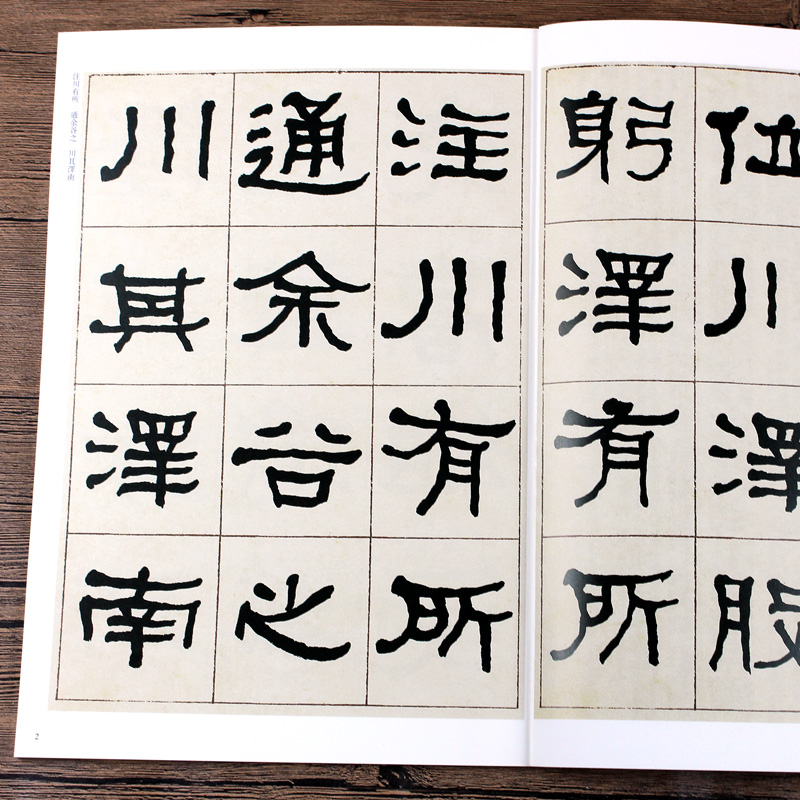 位川澤股
躬澤有所
注川有所
通余谷之
川其澤南
注川有所 通余谷之 川其澤南
2